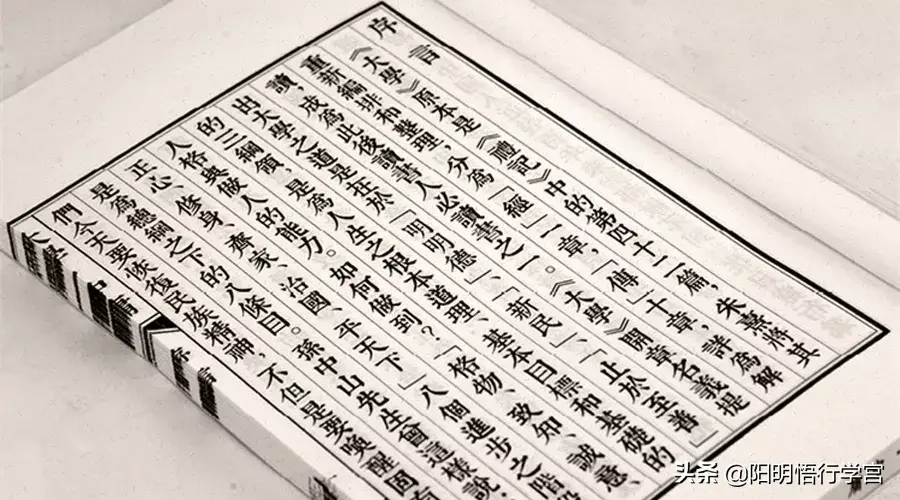 序言
《大學》原本是《禮記》中的第四十二篇，朱熹將其
重新編排和整理，分為「經」一章，「傳」十章，詳為解
讀，成為此後讀書人必讀書之一。《大學》開章名義提
出大學之道是在於「明明德」、「新民」、「止於至善」
的三綱領，是為人生之根本道理、基本目標和基礎的
人格與做人的能力。如何做到？「格物、致知、誠意、
正心、修身、齊家、治國、平天下」八個進步之階
是為總綱之下的八條目。孫中山先生曾這樣說，
們今天要恢復民族精神，不但是要喚醒固有
大學
序言
头条 @阳明悟行学宫